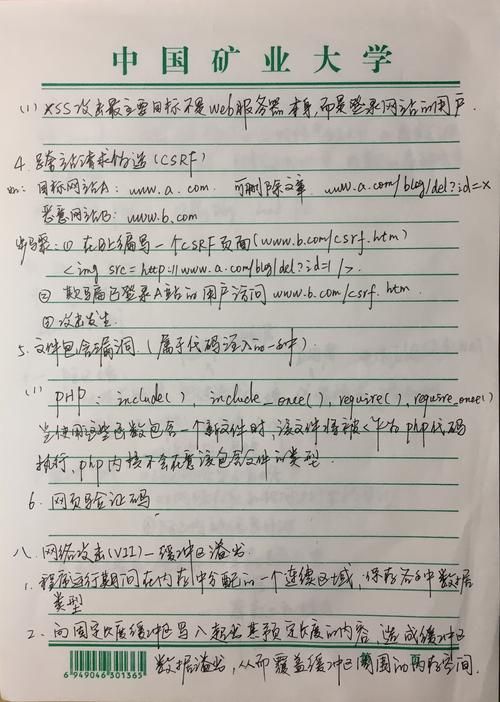 中国矿业大学
(1) XSS攻击最主要目标不是Web服务器本身,而是登录网站的用户.
4. 跨站请求伪造(CSRF)
如: 目标网站A: www.a.com. 可删除文章 www.a.com/blog/del?id=x
恶意网站B: www.b.com
步骤: ① 在B上编写一个CSRF页面(www.b.com/csrf.htm)
<img src=http://www.a.com/blog/del?id=1 />.
② 欺骗已登录A站的用户访问 www.b.com/csrf.htm.
③ 攻击发生.
5. 文件包含漏洞. (属于代码注入的一种).
(1) PHP: include(), include_once(), require(), require_once()
当使用这些函数包含一个新文件时,该文件将被作为php代码
执行,php内核不会在意该包含文件的类型.
6. 网页验证码
八. 网络攻击(VII)—缓冲区溢出.
1. 程序运行期间在内存中分配的一个连续区域,保存各种数据
类型
2. 向固定长度缓冲区写入超出其预定长度的内容,造成缓冲区
数据溢出,从而覆盖缓冲区周围的内存空间.
6 949046 301365